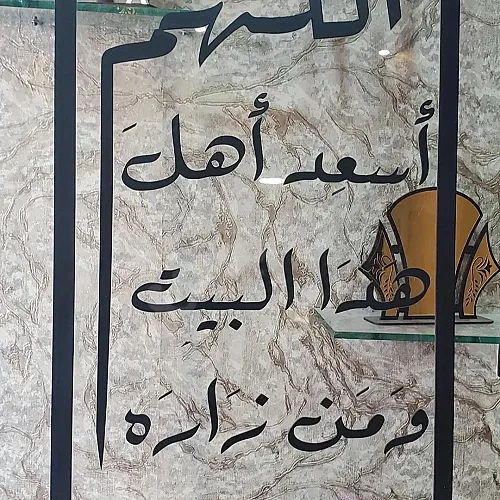 اللهم
أسعِد أهلَ
هذَا البيتِ
وَمَن زَارَه